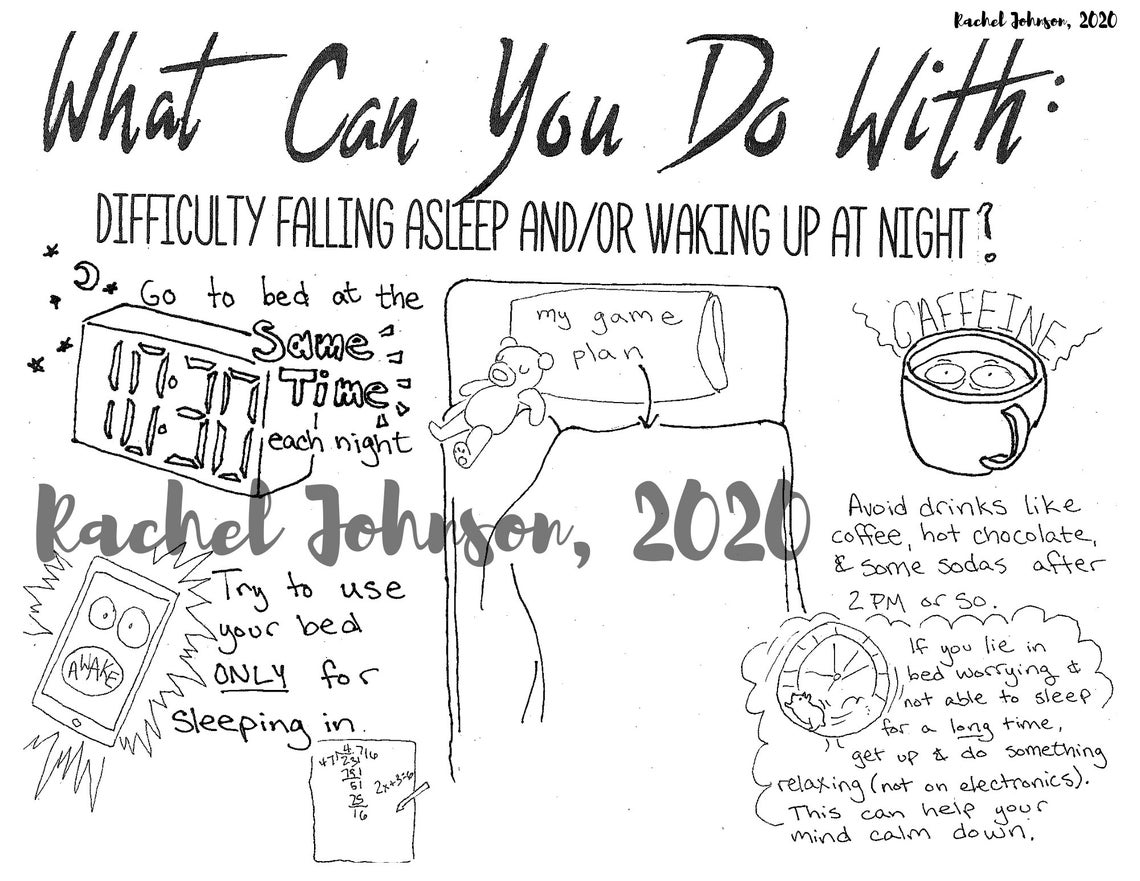 Rachel Johnson, 2020
What Can You Do With:
DIFFICULTY FALLING ASLEEP AND/OR WAKING UP AT NIGHT?
Go to bed at the
Same
Time
each night
10:30
my game
plan
CAFFEINE
Avoid drinks like
coffee, hot chocolate,
& some sodas after
2 PM or so.
Rachel Johnson, 2020
AWAKE
Try to use
your bed
ONLY for
sleeping in.
If you lie in
bed worrying &
not able to sleep
for a long time,
get up & do something
relaxing (not on electronics).
This can help your
mind calm down.
4.716
47 231
51
25
16
2x+3=6